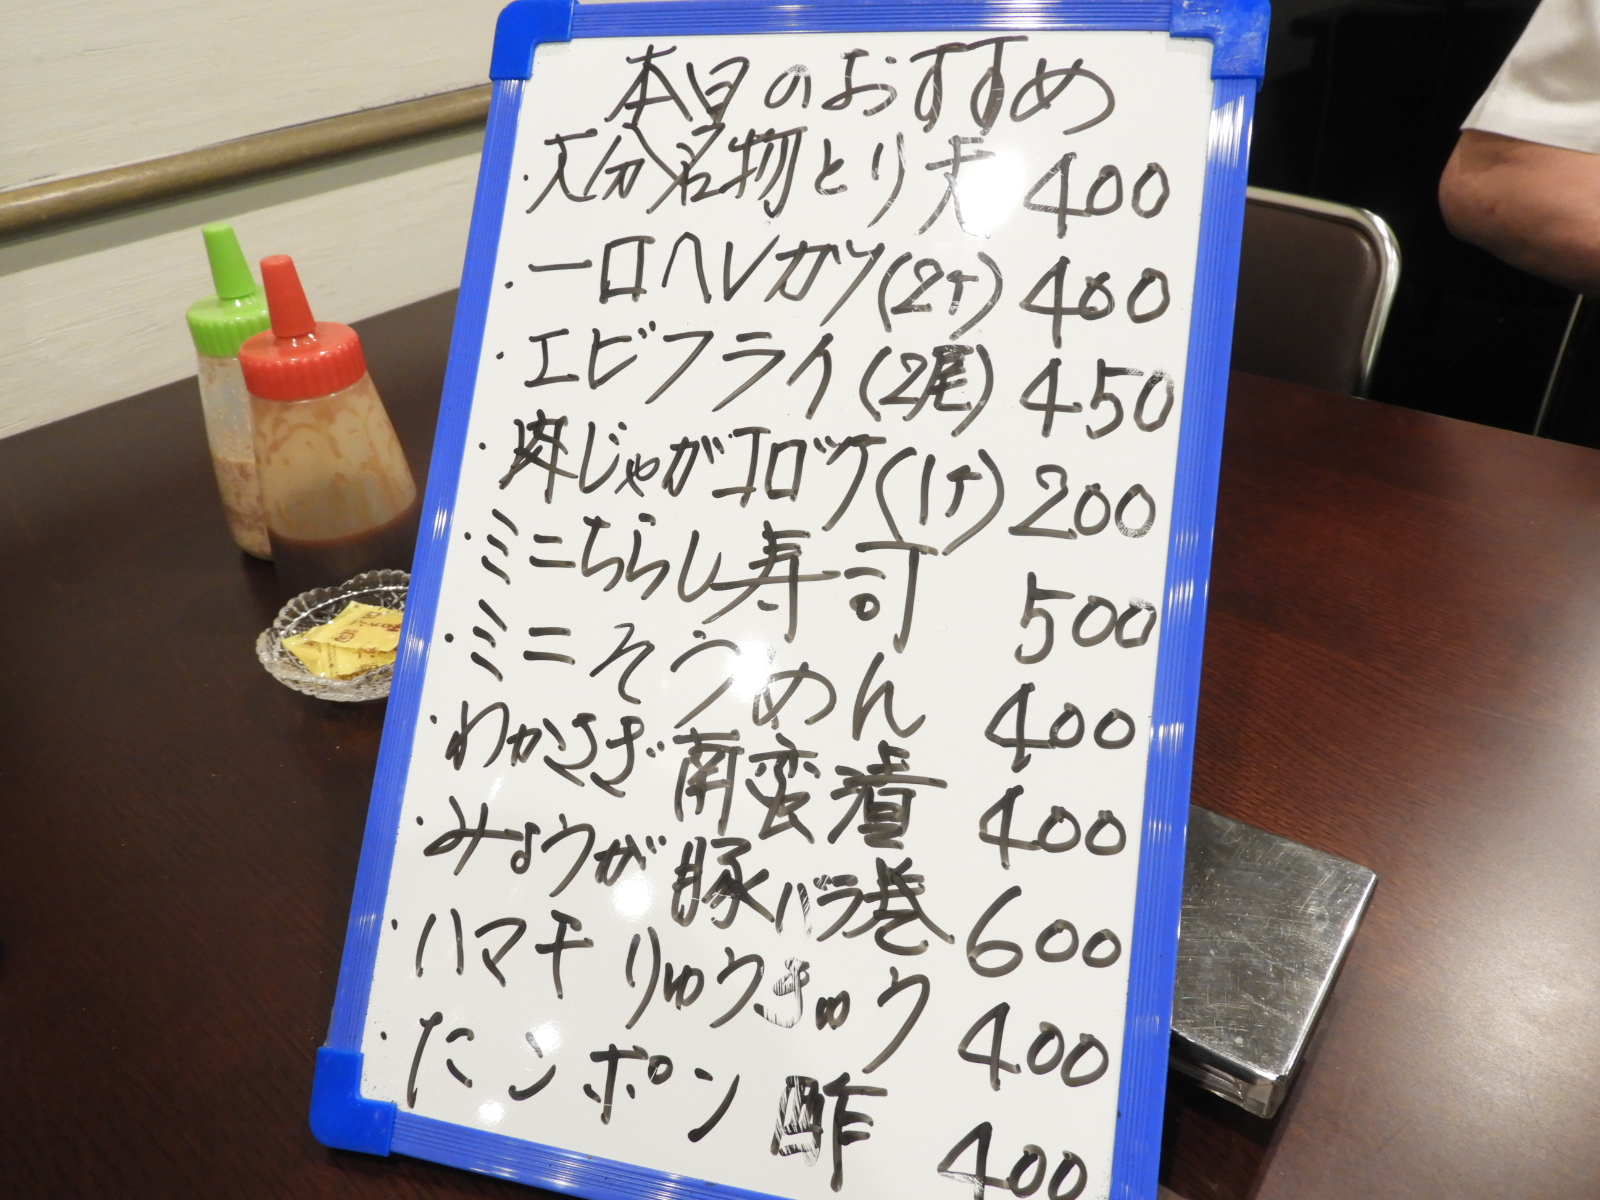 本日のおすすめ
・大分名物とり天 400
・一口ヘレカツ(2ケ) 400
・エビフライ(2尾) 450
・肉じゃがコロッケ(1ケ) 200
・ミニちらし寿司 500
・ミニそうめん 400
・わかさぎ南蛮漬 400
・みょうが豚バラ巻 600
・ハマチりゅうきゅう 400
・たこポン酢 400